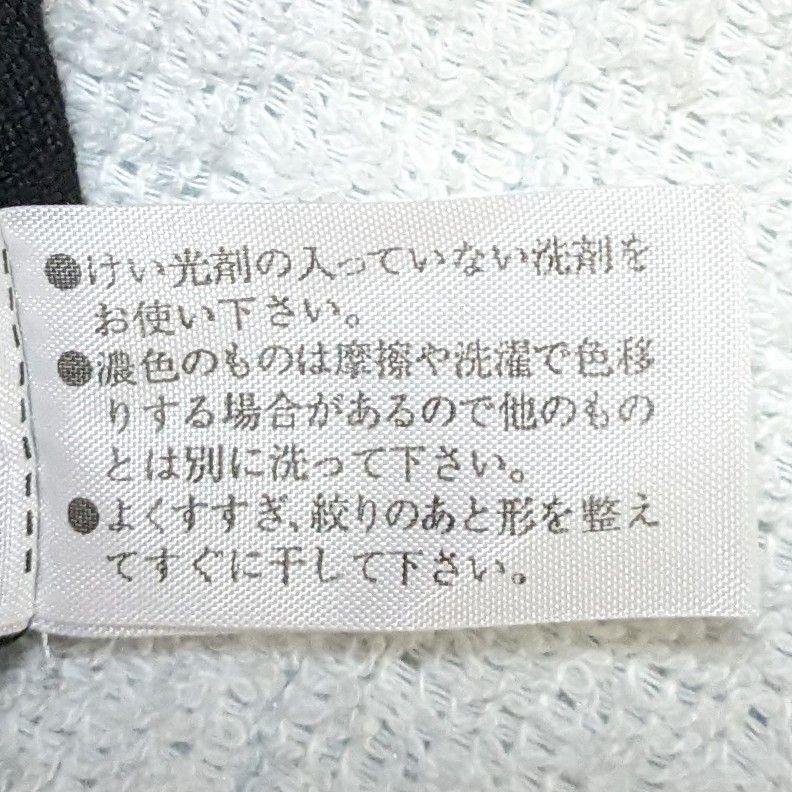 ●けい光剤の入っていない洗剤を
お使い下さい。
●濃色のものは摩擦や洗濯で色移
りする場合があるので他のもの
とは別に洗って下さい。
●よくすすぎ、絞りのあと形を整え
てすぐに干して下さい。